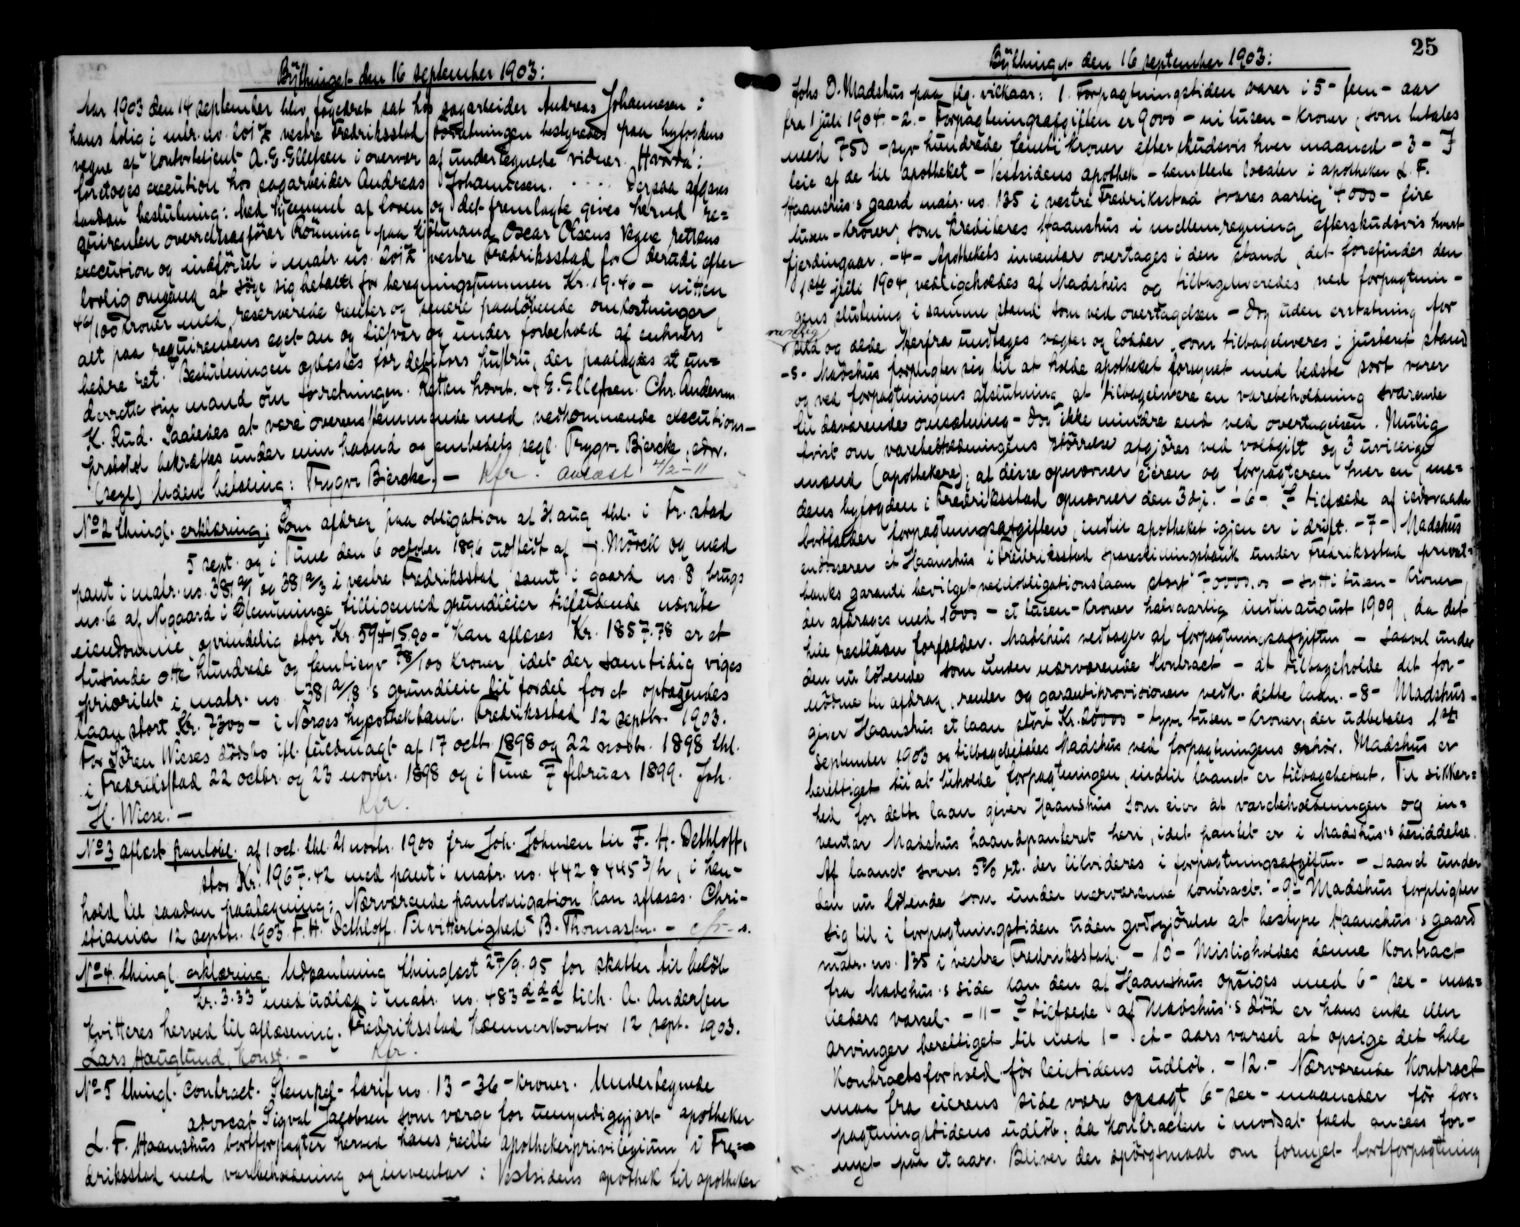 Bÿthinget den 16 september 1903:
Aar 1903 den 14 september blev fogedret sat hos sagarbeider Andreas Johannesen i
hans bolig i matr. no. 201 vestre Fredriksstad. Forretningen bestyredes paa byfogdens
vegne af kontorbetjent A. E. Ellefsen i overvær af undertegnede vidner. Hvorda:
foretoges execution hos sagarbeider Andreas Johannesen. .... Derpaa afgaves
saadan beslutning: Med hjemmel af loven og det fremlagte gives herved re=
quirenten overretssagfører Rönning paa kjøbmand Oscar Olsens vegne rettens
execution og indførsel i matr. no. 201 vestre Fredriksstad for derudi efter
lovlig omgang at søge sig betalt for beregningssummen Kr. 19.46 - nitten
46/100 kroner med reserverede renter og senere paaløbende omkostninger,
alt paa requirentens eget an og tilsvar og under forbehold af enhvers
bedre ret. Beslutningen oplæstes for debitors hustru, der paalagdes at un=
derrette sin mand om forretningen. Retten hævet. A. E. Ellefsen. Chr. Andersen
K. Rud. Saaledes at være overensstemmende med vedkommende executions-
protokol bekræftes under min haand og embedets segl. Trygve Bjercke, edsv.
(segl) Uden betaling: Trygve Bjercke. - Kfr. avlæst 4/2-11
No 2 thingl. erklæring: Som afdrag paa obligation af 31 aug. thl. i Fr.stad
5 sept. og i Tune den 6 october 1896 udstedt af J. Mörck og med
pant i matr. no. 381 og 381 i vestre Fredriksstad samt i gaard no. 8, brugs
no. 6 af N.gaard i Glemminge tilligemed grundleier tilhørende nævnte
eiendomme oprindelig stor Kr. 59415.90 - kan aflæses Kr. 1857.78 er et
tusinde otte hundrede og femtisyv 78/100 kroner, idet der samtidig viges
prioritet i matr. no. 381 's grundleie til fordel for et optagendes
laan stort Kr. 7300 - i Norges hypothekbank. Fredriksstad 12 septbr. 1903.
For Sören Wieses dødsbo ifl. fuldmagt af 17 octbr. 1898 og 22 novbr. 1898 thl.
i Fredriksstad 22 octbr. og 23 novbr. 1898 og i Tune 7 februar 1899. Joh.
H. Wiese. - Kfr.
No 3 aflæst pantobl. af 1 oct. thl. 21 novbr. 1900 fra Joh. Johnsen til F. H. Dethloff,
stor Kr. 1967.42 med pant i matr. no. 442 & 445, i hen-
hold til saadan paategning: Nærværende pantobligation kan aflæses. Chri-
stiania 12 septbr. 1903 F. H. Dethloff. Til vitterlighed B. Thomassen. - cfr.
No 4. thingl. erklæring. Udpantning thinglæst 27/9.95 for skatter til beløb
Kr. 3.33 med udlæg i matr. no. 483 tilh. A. Andersen
kvitteres herved til aflæsning. Fredriksstad kæmnerkontor 12 sept. 1903.
Lars Hauglund, konst. - Kfr.
No 5 thingl. contract. Stempel-tarif no. 13 - 36 - kroner. Undertegnede
advocat Sigvald Jacobsen som værge for umyndiggjort apotheker
L. F. Haanshus bortforpagter herved hans reelle apothekerprivilegium i Fre=
driksstad med varebeholdning og inventar: Vestsidens apothek til apotheker
25
Bÿthinget den 16 september 1903:
Johs D. Madshus paa flg. vilkaar: 1. Forpagtningstiden varer i 5 - fem - aar
fra 1 juli 1904. - 2. - Forpagtningsafgiften er 9000 - ni tusen - kroner, som betales
med 750 - syv hundrede femti kroner efterskudsvis hver maaned - 3 - I
leie af de til apotheket - Vestsidens apothek - benyttede localer i apotheker L. F.
Haanshus's gaard matr. no. 135 i vestre Fredriksstad svares aarlig 4000 - fire
tusen - kroner, som krediteres Haanshus i mellemregning efterskudsvis hvert
fjerdingaar. - 4 - Apothekets inventar overtages i den stand, det forefindes den
1ste juli 1904, vedligeholdes af Madshus og tilbageleveredes ved forpagtnin-
gens slutning i samme stand som ved overtagelsen - dog uden erstatning for
vanlig
slid og ælde. Herfra undtages vægter og lodder, som tilbageleveres i justeret stand
- 5 - Madshus forpligter sig til at holde apotheket forsynet med bedste sort varer
og ved forpagtningens afslutning at tilbagelevere en varebeholdning svarende
til daværende omsætning - dog ikke mindre end ved overtagelsen. Mulig
tvist om varebeholdningens størrelse afgjøres ved voldgift og 3 uvillige
mænd (apothekere); af disse opnævner eieren og forpagteren hver en me=
dens byfogden i Fredriksstad opnævner den 3dje. - 6 - I tilfælde af ildsvaade
bortfalder forpagtningsafgiften, indtil apotheket igjen er i drift. - 7 - Madshus
endosserer et Haanshus i Fredriksstad sparekisningsbank under Fredriksstad privat-
banks garanti bevilget vexelobligationslaan stort 70000.00 - sytti tusen - kroner
der afdrages med 1000 - et tusen - kroner halvaarlig indtil august 1909, da det
hele restlaan forfalder. Madshus vedtager af forpagtningsafgiften - saavel under
den nu løbende som under nærværende kontract - at tilbageholde det for-
nødne til afdrag, renter og garantiprovisionen vedk. dette laan. - 8 - Madshus
giver Haanshus et laan stort Kr. 20000 - tyve tusen - kroner, der udbetales 1ste
september 1903 og tilbagebetales Madshus ved forpagtningens ophør. Madshus er
berettiget til at beholde forpagtningen, indtil laanet er tilbagebetalt. Til sikker-
hed for dette laan giver Haanshus som eier af varebeholdningen og in=
ventar Madshus haandpanteret heri, idet pantet er i Madshus's besiddelse.
Af laanet svares 5% rt. der likvideres i forpagtningsafgiften - saavel under
den nu løbende som under nærværende kontract. - 9 - Madshus forpligter
sig til i forpagtningstiden uden godtgjørelse at bestyre Haanshus's gaard
matr. no. 135 i vestre Fredriksstad. - 10 - Misligholdes denne kontract
fra Madshus's side kan den af Haanshus opsiges med 6 - sex - maa=
neders varsel. - 11 - I tilfælde af Madshus's død er hans enke eller
arvinger berettiget til med 1 - et - aars varsel at opsige det hele
kontractsforhold før leietidens udløb. - 12. - Nærværende kontract
maa fra eierens side være opsagt 6 - sex - maaneder før for-
pagtningstidens udløb; da kontracten i modsat fald ansees for-
nyet paa et aar. Bliver der spørgsmaal om fornyet bortforpagtning